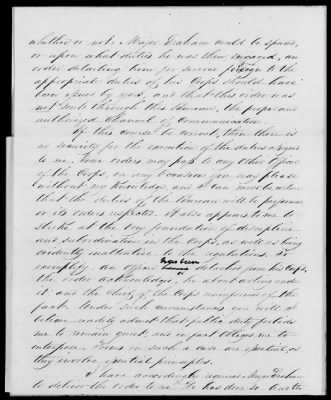 whether or not Major Graham could be spared,
or upon what duties he was then engaged, an
order detaching him for service foreign to the
appropriate duties of his Corps should have
been issued by you, and that this order was
not sent through this Bureau, the proper and
authorized channel of communication.
If this course be correct, then there is
no security for the execution of the duties assigned
to me. Your orders may pass to any other officer
of the Corps, on any occasion you may please
without my knowledge, and I can never be certain
that the duties of the Bureau will be performed
or its orders respected. It also appears to me to
strike at the very foundation of discipline
and subordination in the Corps, as well as being
evidently
exemplify. An officer has been detached from his Corps,
the order acknowledged, he about acting under
it and the Chief of the Corps uninformed of the
fact. Under such circumstances you will I
believe readily admit that justice duty forbids
me to remain quiet, and in fact obliges me to
interpose. Forms in such a case are essential as
they involve essential principles.
I have accordingly required Major Graham
to deliver the order to me. He has done so. Another